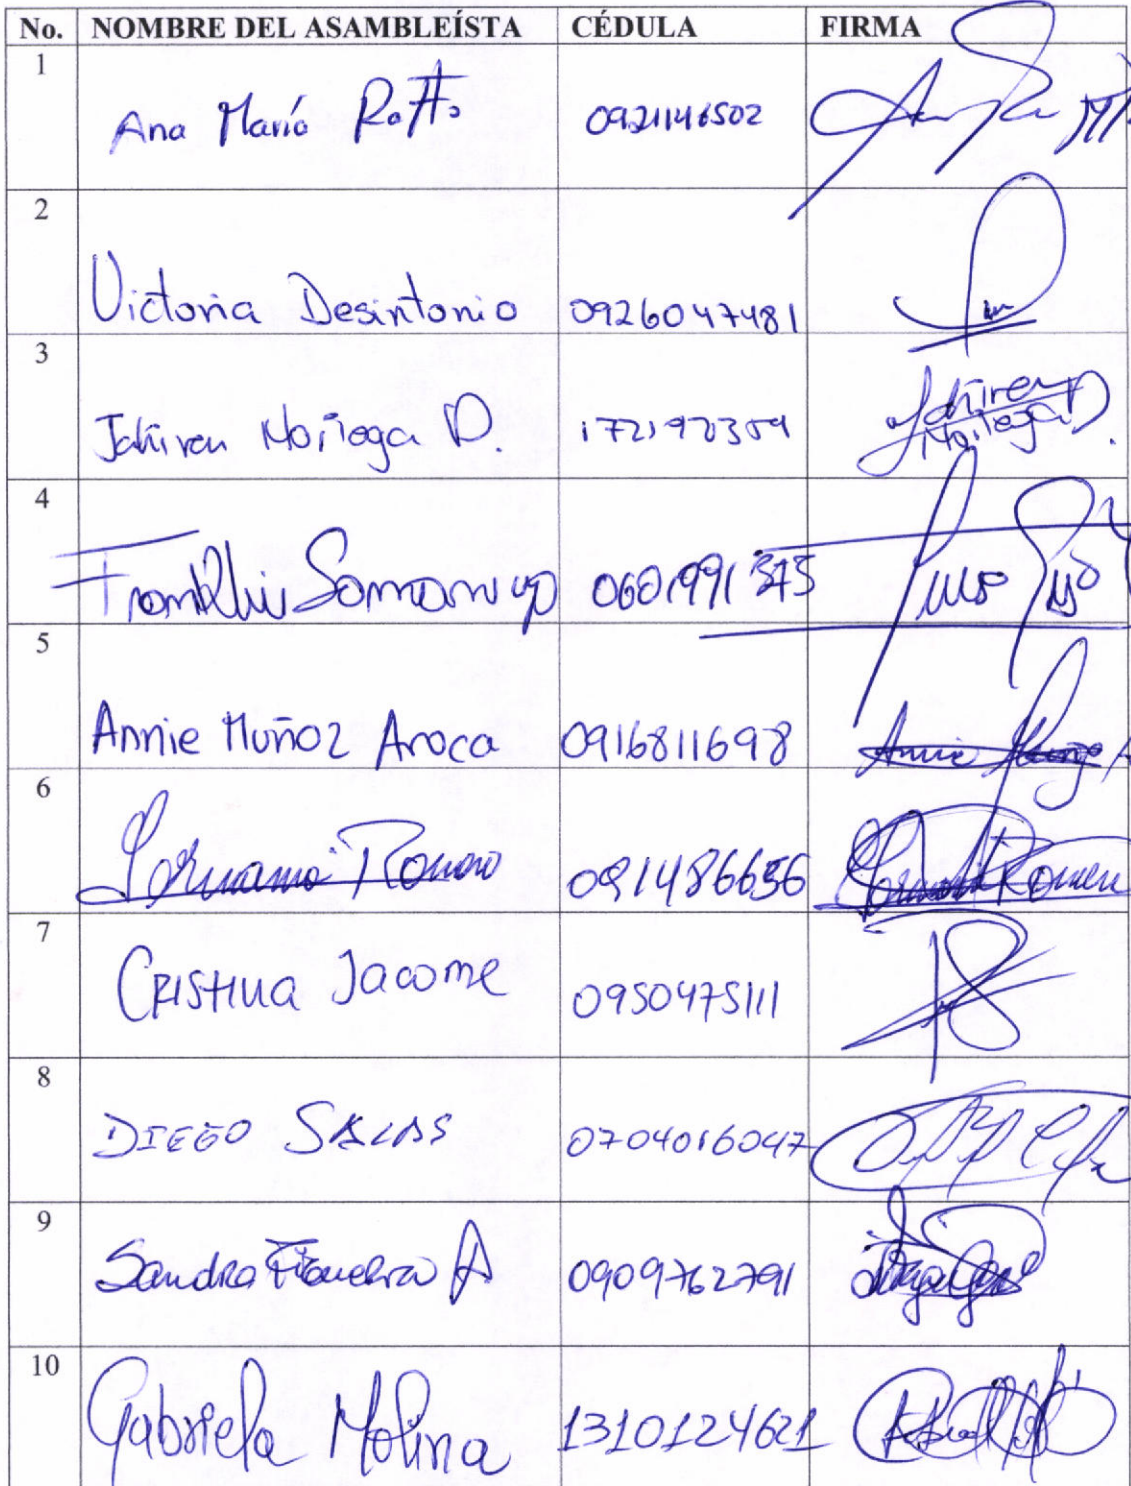 No. NOMBRE DEL ASAMBLEÍSTA CÉDULA FIRMA
1 Ana María Raffo 0921146502
2 Victoria Desintonio 0926047481
3 Jahiren Noriega D. Jahiren Noriega D.
4 Franklin Samaniego 0601991373
5 Annie Muñoz Aroca 0916811698 Annie
6 Romero 0914866
7 CRISTINA Jacome 0950475111
8 DIEGO SALAS 0704016047
9 Sandra A 0909762791
10 Gabriela Molina 1310124621